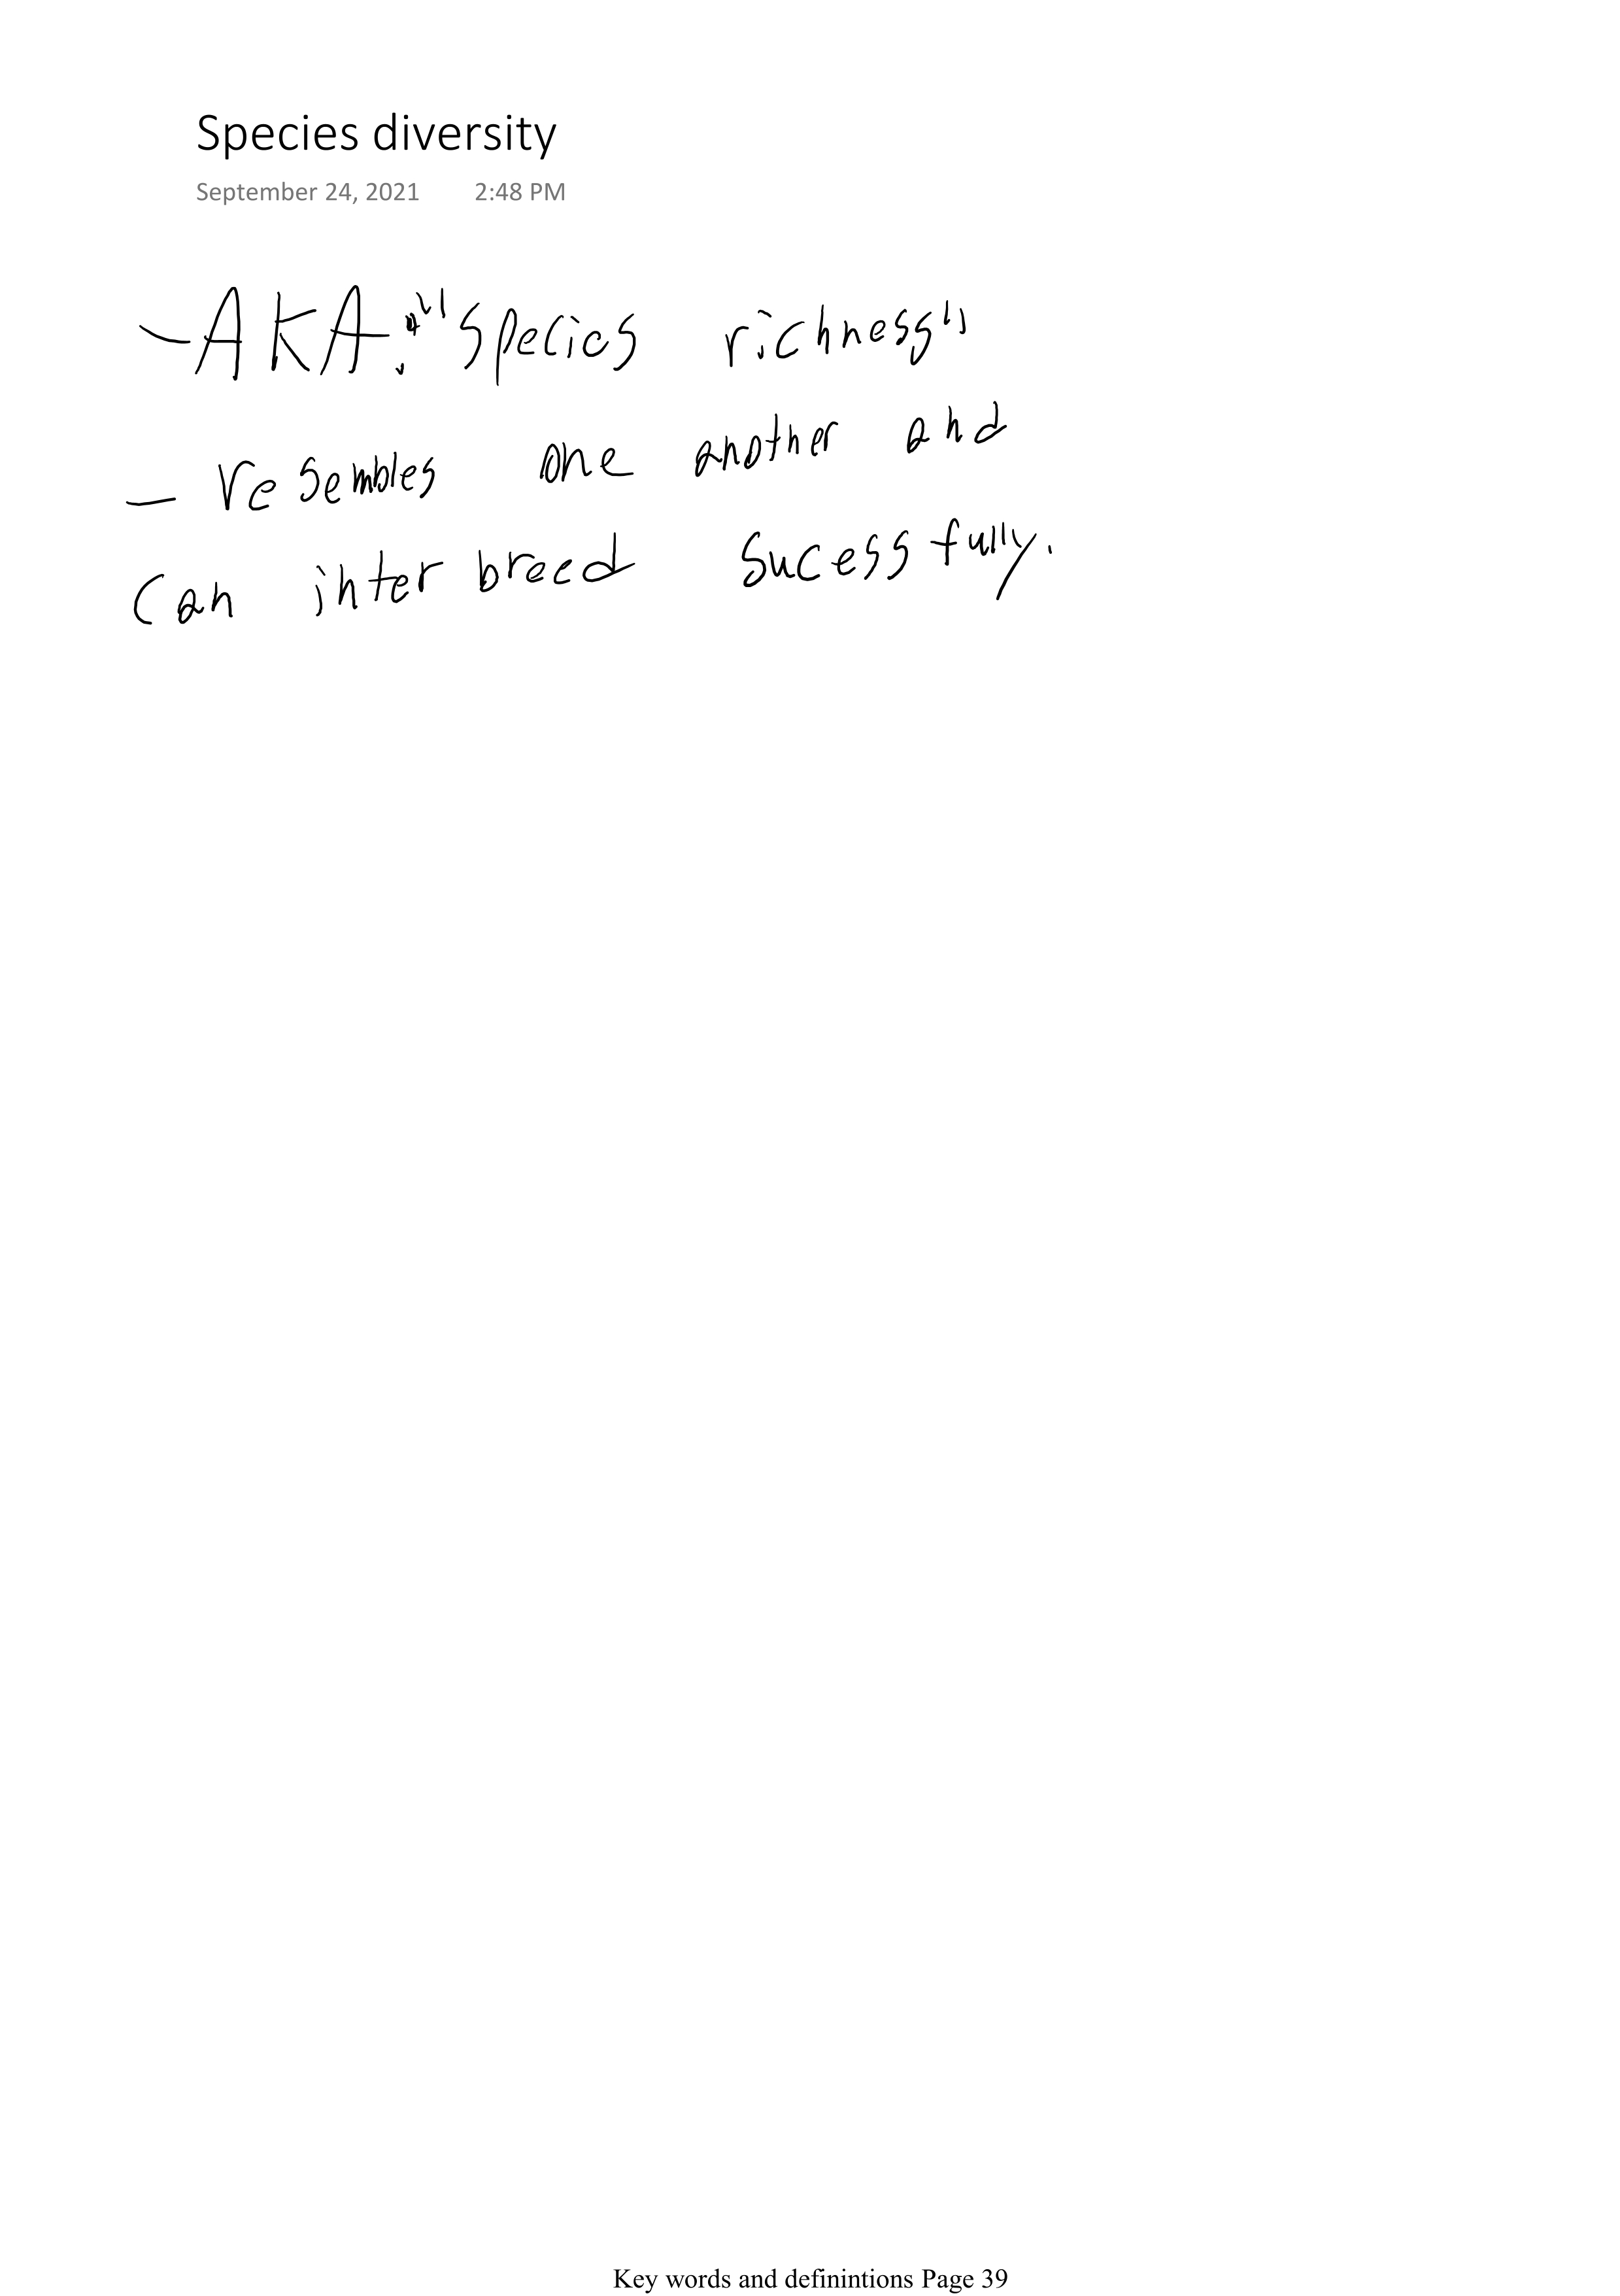 Species diversity
September 24, 2021 2:48 PM
- AKA: "Species richness"
- resembles one another and
can interbreed sucessfully.
Key words and definintions Page 39